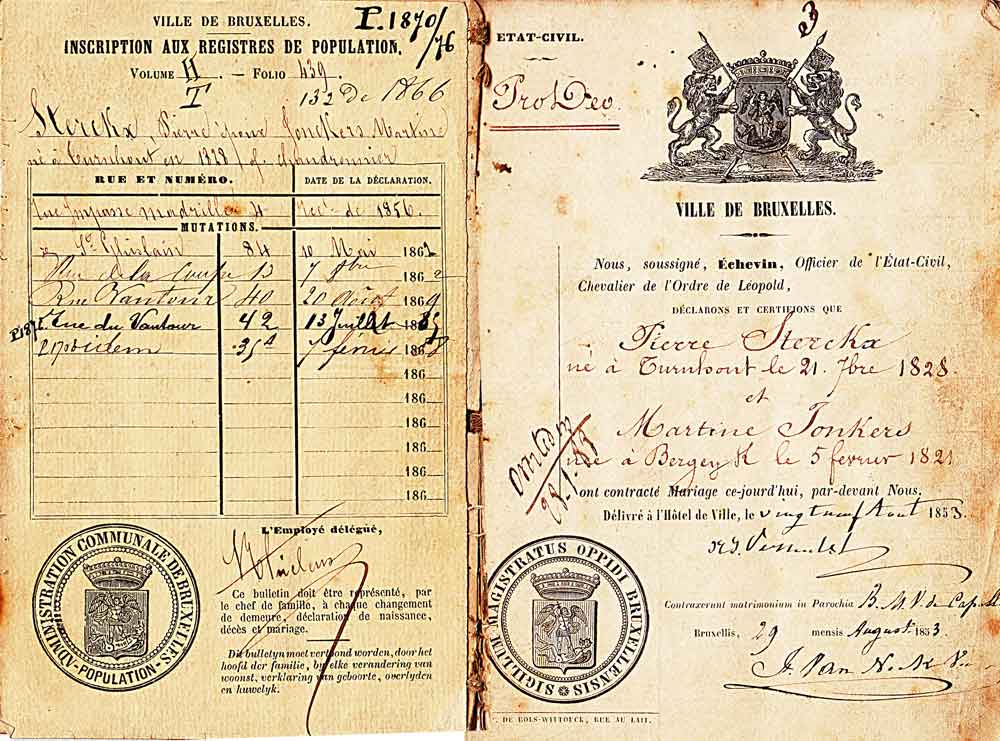 VILLE DE BRUXELLES.
P. 1870/76
INSCRIPTION AUX REGISTRES DE POPULATION.
VOLUME 11 . — FOLIO 439 .
T 132 de 1866
Sterckx, Pierre époux Jonckers Martine
né à Turnhout en 1828
RUE ET NUMÉRO. DATE DE LA DÉCLARATION.
Impasse 4 de 1856.
MUTATIONS.
St Ghislain 84 10 Mai 1862
Rue de la 13 7 bre 186
Rue Vautour 40 20 Août 1869
rue du Vautour 42 13 Juillet 186
idem 35A 7 186
186
186
186
186
186
186
L'Employé délégué,
Ce bulletin doit être représenté, par
le chef de famille, à chaque changement
de demeure, déclaration de naissance,
décès et mariage.
Dit bulletyn moet vertoond worden, door het
hoofd der familie, by elke verandering van
woonst, verklaring van geboorte, overlyden
en huwelyk.
ADMINISTRATION COMMUNALE DE BRUXELLES
POPULATION
3
ETAT-CIVIL.
Pro Deo.
VILLE DE BRUXELLES.
Nous, soussigné, Échevin, Officier de l'État-Civil,
Chevalier de l'Ordre de Léopold,
DÉCLARONS ET CERTIFIONS QUE
Pierre Sterckx
né à Turnhout le 21 7bre 1828
et
Martine Jonkers
née à le 5 fevrier 1821
ont contracté Mariage ce-jourd'hui, par-devant Nous.
Délivré à l'Hôtel de Ville, le vingt neuf Aout 1853.
SIGILLUM MAGISTRATUS OPPIDI BRUXELLENSIS
Contraxerunt matrimonium in Parochia B. M. V. de Cap
Bruxellis, 29 mensis Augusti 1853.
DE BOLS-WITTOUCK, RUE AU LAIT.